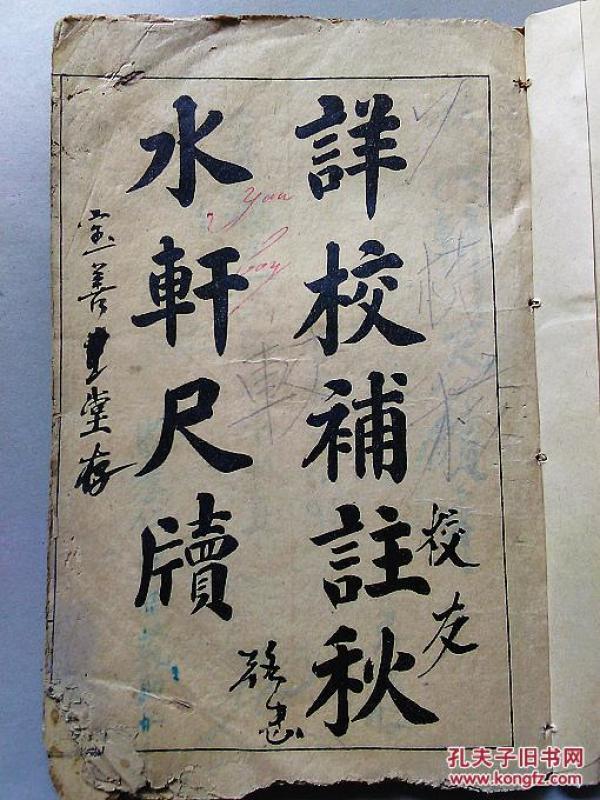 詳校補註秋
水軒尺牘
校友
善
堂存
You
boy
軟
孔夫子旧书网
www.kongfz.com